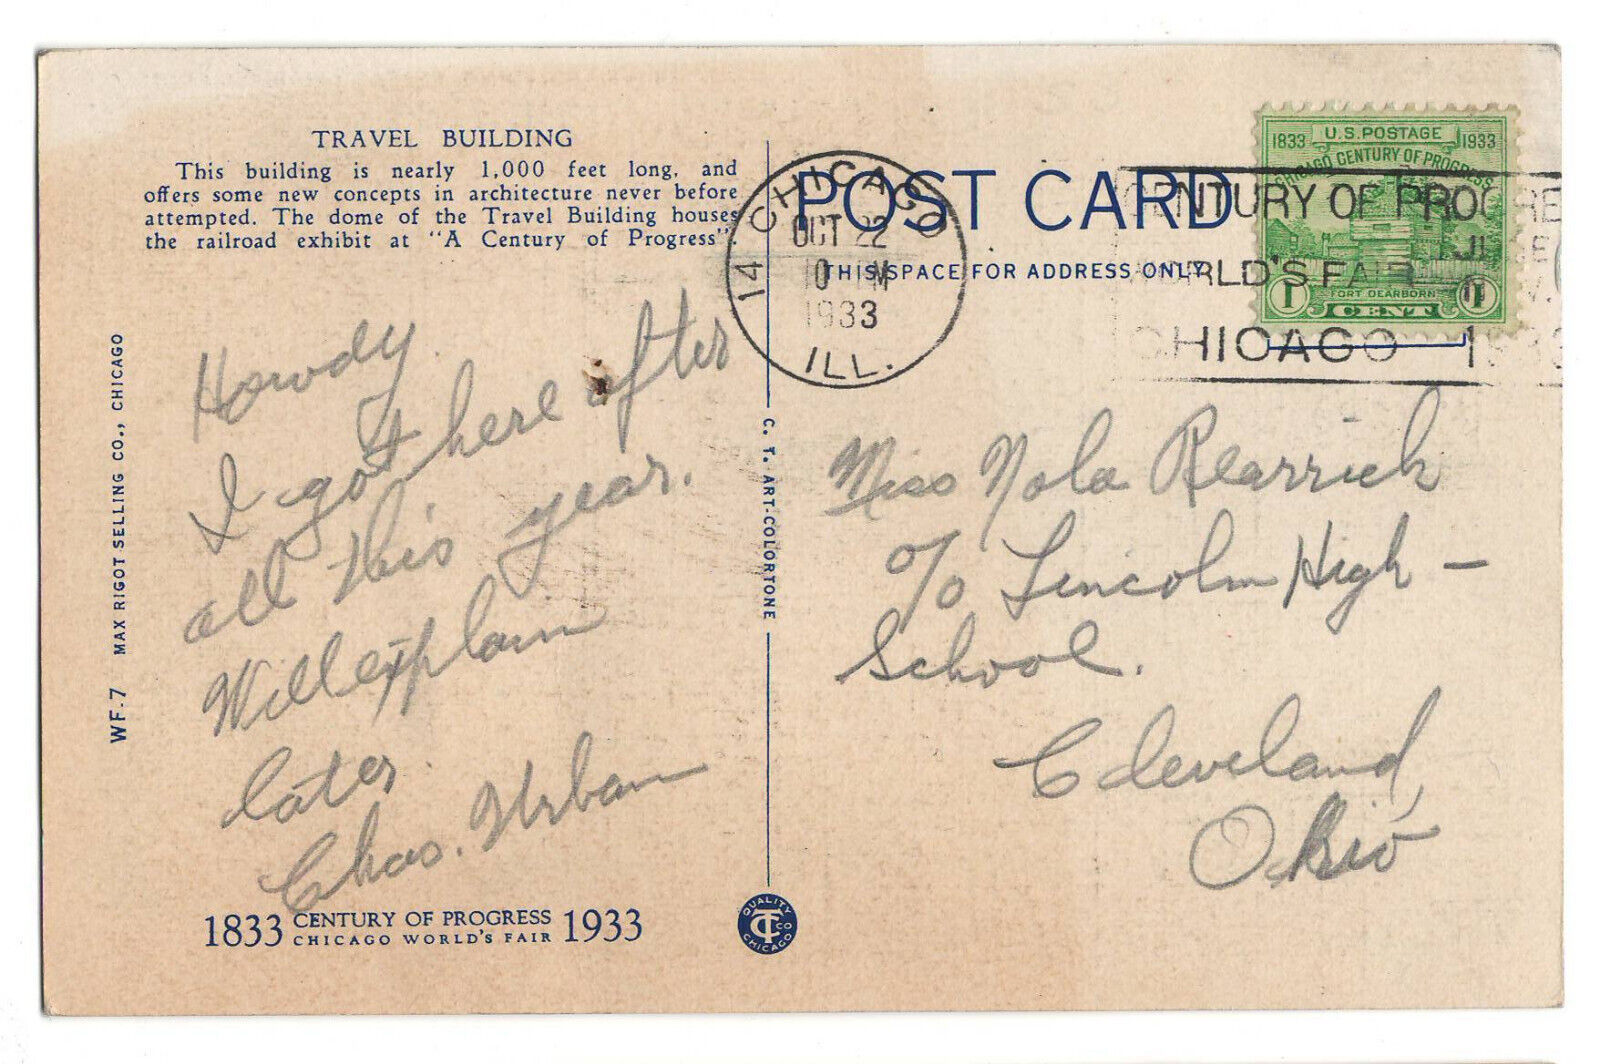 TRAVEL BUILDING
This building is nearly 1,000 feet long, and
offers some new concepts in architecture never before
attempted. The dome of the Travel Building houses
the railroad exhibit at "A Century of Progress".
Howdy.
I got here after
all this year.
Will explain
later.
Chas. Urban
1833 CENTURY OF PROGRESS 1933
CHICAGO WORLD'S FAIR
WF.7 MAX RIGOT SELLING CO., CHICAGO
C. T. ART-COLORTONE
QUALITY
CT CO
CHICAGO
POST CARD
THIS SPACE FOR ADDRESS ONLY
14 CHICAGO
OCT 22
10
1933
ILL.
1833 U.S. POSTAGE 1933
CHICAGO CENTURY OF PROGRESS
FORT DEARBORN
1 CENT 1
CENTURY OF PROGRE
WORLD'S FAIR
CHICAGO 1933
Miss Nola Rearrick
c/o Lincoln High –
School.
Cleveland,
Ohio